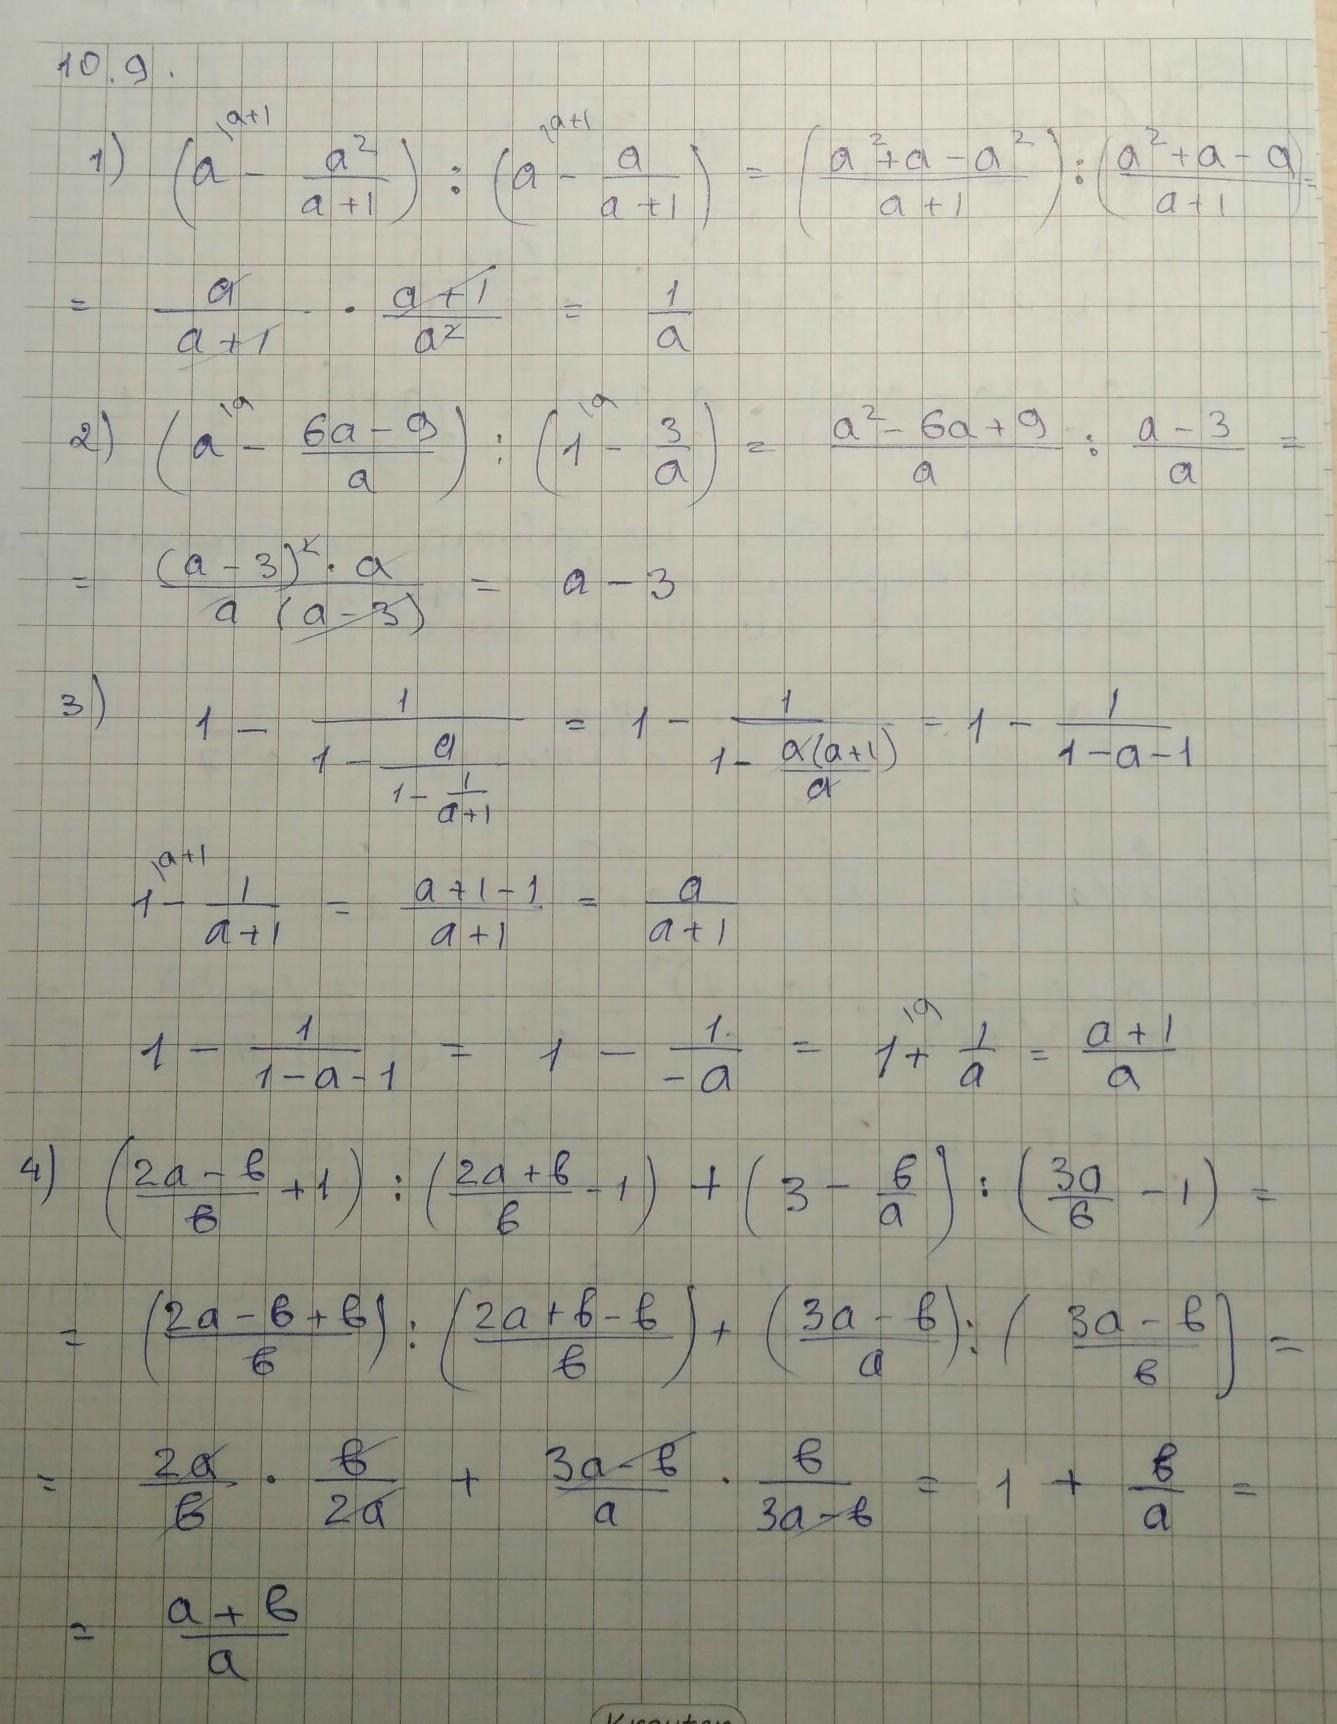 10.9.
1) (a^{\a+1} - a²/(a+1)) : (a^{\a+1} - a/(a+1)) = ((a²+a-a²)/(a+1)) : ((a²+a-a)/(a+1)) =
= a/(a+1) · (a+1)/a² = 1/a
2) (a^{\a} - (6a-9)/a) : (1^{\a} - 3/a) = (a²-6a+9)/a : (a-3)/a =
= ((a-3)²·a)/(a(a-3)) = a-3
3) 1 - 1/(1 - a/(1 - 1/(a+1))) = 1 - 1/(1 - a(a+1)/a) = 1 - 1/(1-a-1)
1^{\a+1} - 1/(a+1) = (a+1-1)/(a+1) = a/(a+1)
1 - 1/(1-a-1) = 1 - 1/(-a) = 1^{\a} + 1/a = (a+1)/a
4) ((2a-в)/в + 1) : ((2a+в)/в - 1) + (3 - в/a) : (3a/в - 1) =
= ((2a-в+в)/в) : ((2a+в-в)/в) + ((3a-в)/a) : ((3a-в)/в) =
= 2a/в · в/2a + (3a-в)/a · в/(3a-в) = 1 + в/a =
= (a+в)/a